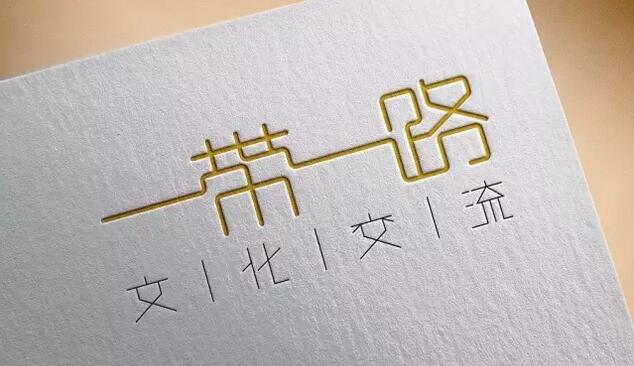 一带一路
文|化|交|流